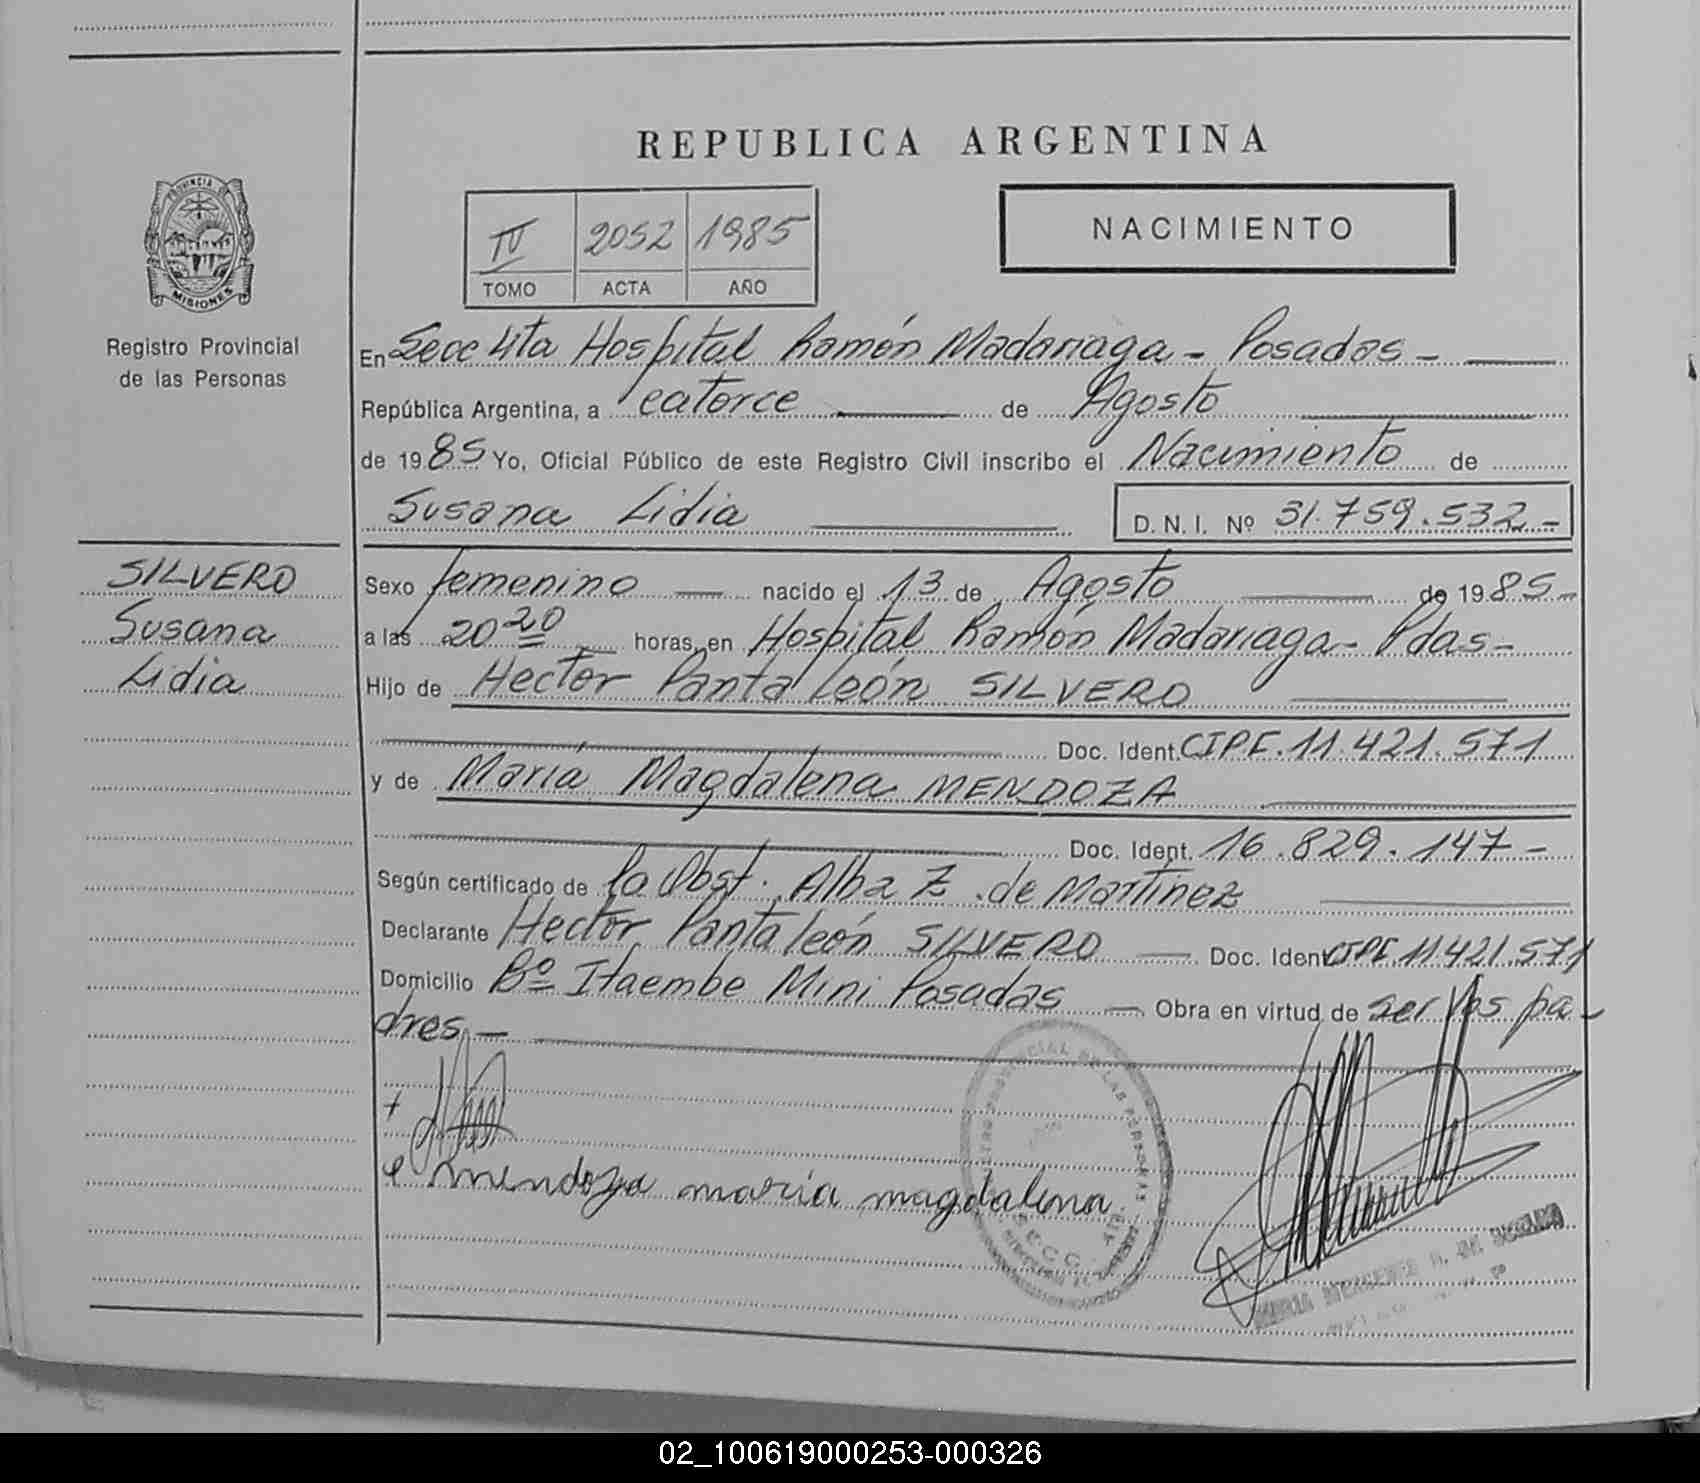 REPUBLICA ARGENTINA
PROVINCIA DE
MISIONES
Registro Provincial
de las Personas
IV 2052 1985
TOMO ACTA AÑO
NACIMIENTO
En Secc 4ta Hospital Ramón Madariaga - Posadas -
República Argentina, a catorce de Agosto
de 1985 Yo, Oficial Público de este Registro Civil inscribo el Nacimiento de
Susana Lidia D. N. I. Nº 31.759.532 -
SILVERO
Susana
Lidia
Sexo femenino nacido el 13 de Agosto de 1985
a las 20 20 horas, en Hospital Ramón Madariaga - Pdas -
Hijo de Hector Pantaleón SILVERO
Doc. Ident. CIPF. 11.421.571
y de María Magdalena MENDOZA
Doc. Ident. 16.829.147 -
Según certificado de la Obst. Alba Z. de Martinez
Declarante Hector Pantaleón SILVERO Doc. Ident. CIPF 11421.571
Domicilio Bº Itaembe Mini Posadas Obra en virtud de ser los pa-
dres. -
mendoza maria magdalena
PROVINCIAL DE LAS PERSONAS
SECC. 4ta.